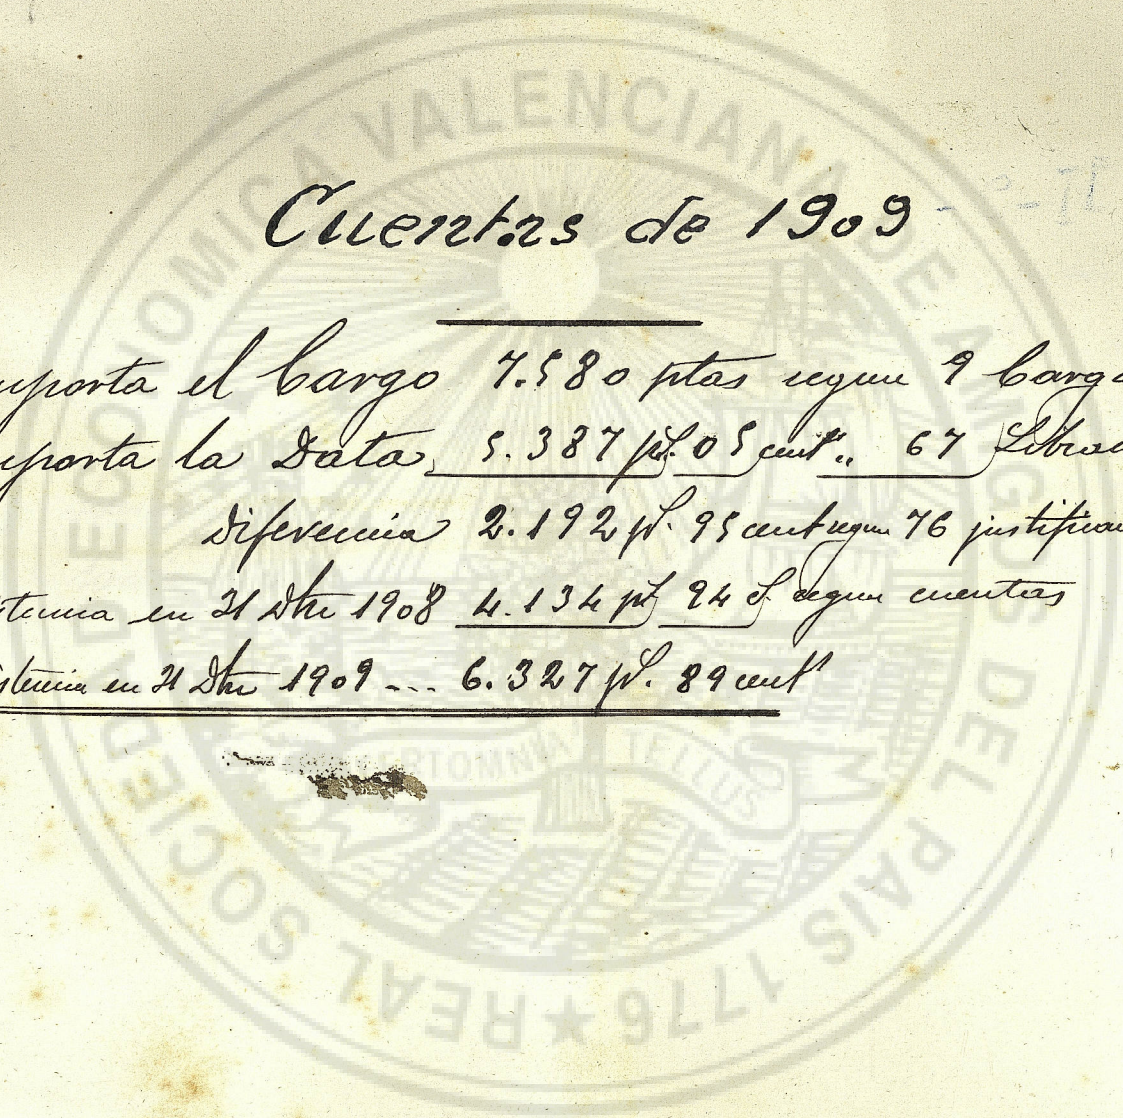 Cuentas de 1909
mporta el Cargo 7.580 ptas segun 9 Cargo
mporta la Data 5.387 pts. 05 cents „ 67 Libram
Diferencia 2.192 pts. 95 cent segun 76 justifican
stencia en 31 Dbre 1908 4.134 pts 94 cs segun cuentas
istencia en 31 Dbre 1909 --- 6.327 pts. 89 cents
REAL SOCIEDAD ECONOMICA VALENCIANA DE AMIGOS DEL PAIS 1776 ★